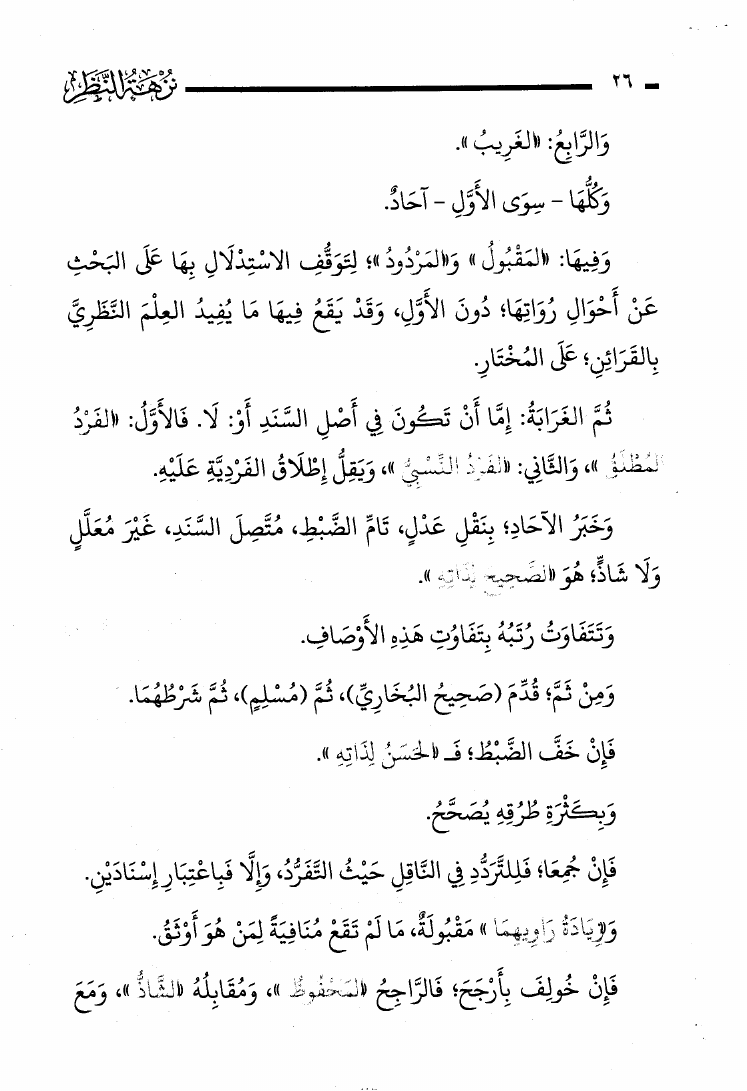 ٢٦ نُزْهَةُ النَّظَرِ
وَالرَّابِعُ: «الغَرِيبُ».
وَكُلُّهَا - سِوَى الأَوَّلِ - آحَادٌ.
وَفِيهَا: «المَقْبُولُ» وَ«المَرْدُودُ»؛ لِتَوَقُّفِ الاسْتِدْلَالِ بِهَا عَلَى البَحْثِ
عَنْ أَحْوَالِ رُوَاتِهَا؛ دُونَ الأَوَّلِ، وَقَدْ يَقَعُ فِيهَا مَا يُفِيدُ العِلْمَ النَّظَرِيَّ
بِالقَرَائِنِ؛ عَلَى المُخْتَارِ.
ثُمَّ الغَرَابَةُ: إِمَّا أَنْ تَكُونَ فِي أَصْلِ السَّنَدِ أَوْ: لَا. فَالأَوَّلُ: «الفَرْدُ
المُطْلَقُ»، وَالثَّانِي: «الفَرْدُ النِّسْبِيُّ»، وَيَقِلُّ إِطْلَاقُ الفَرْدِيَّةِ عَلَيْهِ.
وَخَبَرُ الآحَادِ؛ بِنَقْلِ عَدْلٍ، تَامِّ الضَّبْطِ، مُتَّصِلَ السَّنَدِ، غَيْرَ مُعَلَّلٍ
وَلَا شَاذٍّ؛ هُوَ «الصَّحِيحُ لِذَاتِهِ».
وَتَتَفَاوَتُ رُتَبُهُ بِتَفَاوُتِ هَذِهِ الأَوْصَافِ.
وَمِنْ ثَمَّ؛ قُدِّمَ (صَحِيحُ البُخَارِيِّ)، ثُمَّ (مُسْلِمٍ)، ثُمَّ شَرْطُهُمَا.
فَإِنْ خَفَّ الضَّبْطُ؛ فَـ «الحَسَنُ لِذَاتِهِ».
وَبِكَثْرَةِ طُرُقِهِ يُصَحَّحُ.
فَإِنْ جُمِعَا؛ فَلِلتَّرَدُّدِ فِي النَّاقِلِ حَيْثُ التَّفَرُّدُ، وَإِلَّا فَبِاعْتِبَارِ إِسْنَادَيْنِ.
وَ«زِيَادَةُ رَاوِيهِمَا» مَقْبُولَةٌ، مَا لَمْ تَقَعْ مُنَافِيَةً لِمَنْ هُوَ أَوْثَقُ.
فَإِنْ خُولِفَ بِأَرْجَحَ؛ فَالرَّاجِحُ «المَحْفُوظُ»، وَمُقَابِلُهُ «الشَّاذُّ»، وَمَعَ